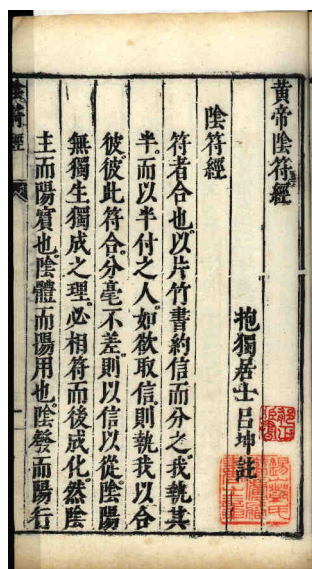 黄帝陰符經
抱獨居士呂坤註
陰符經
符者合也以片竹書約信而分之我執其
半而以半付之人如欲取信則執我以合
彼彼此符合分毫不差則以信以從陰陽
無獨生獨成之理必相符而後成化然陰
主而陽賓也陰體而陽用也陰發而陽行
陰符經